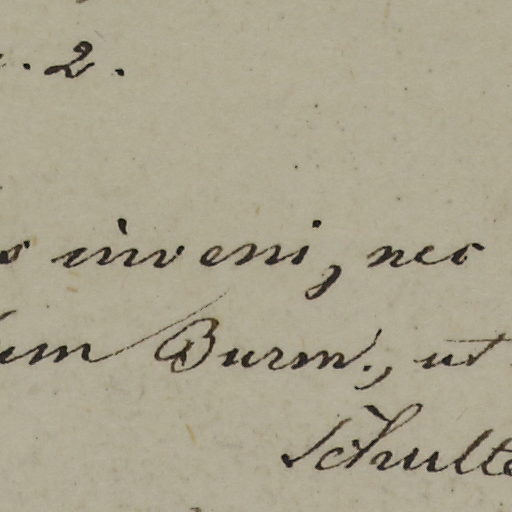 . 2.
inveni, nec
Burm., ut
Schulte